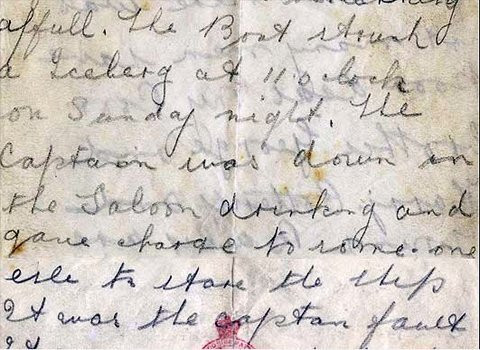 affull. The Boat struck
a Iceberg at 11 oclock
on Sunday night. The
Captain was down in
the Saloon drinking and
gave charge to some one
else to stare the ship
It was the captan fault